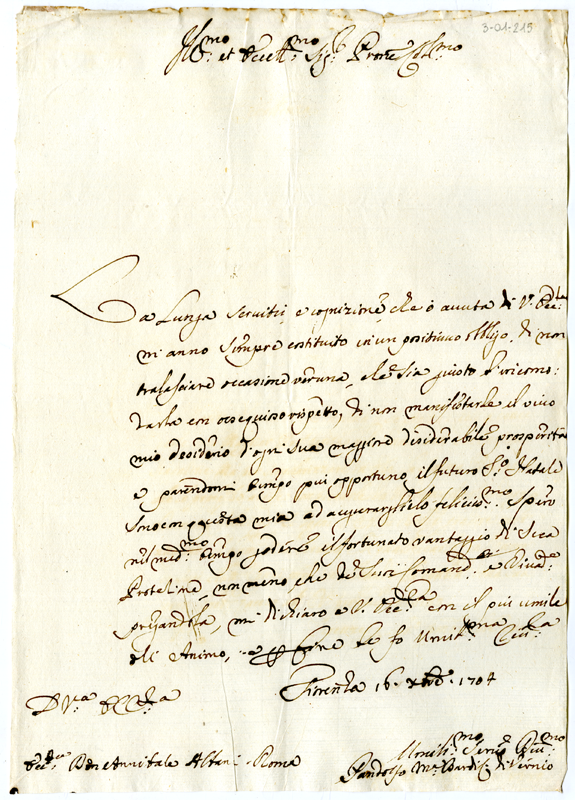 3-01-215
Ill.mo et Ecc.mo Sig.r Prone Col.mo
La lunga servitù, e cognizione, che ò avuta di V. Ecc.za
mi anno sempre costituito in un positivo obligo, di non
tralasciare occasione veruna, che sia giusto d'
con ossequioso rispetto, di non manifestarle il vivo
mio desiderio d'ogni sua maggiore desiderabile prosperità
e parendomi tempo più opportuno il futuro S.o Natale
sono con questa mia ad augurarglielo feliciss.mo. Spero
nel med.mo tempo godere il fortunato vantaggio di Sua
Protezione, non meno, che de Suoi Comandi, e
pregandola, mi dichiaro e V. Ecc.za con il più umile
dell Animo, e fo Umil.ma
Firenza 16 Xbre 1704
D V.a Ecc.za
Ecc.za Don Annibale Albani Roma
Umiliss.mo Serv.e
Pandolfo M.a Bardi di Vernio